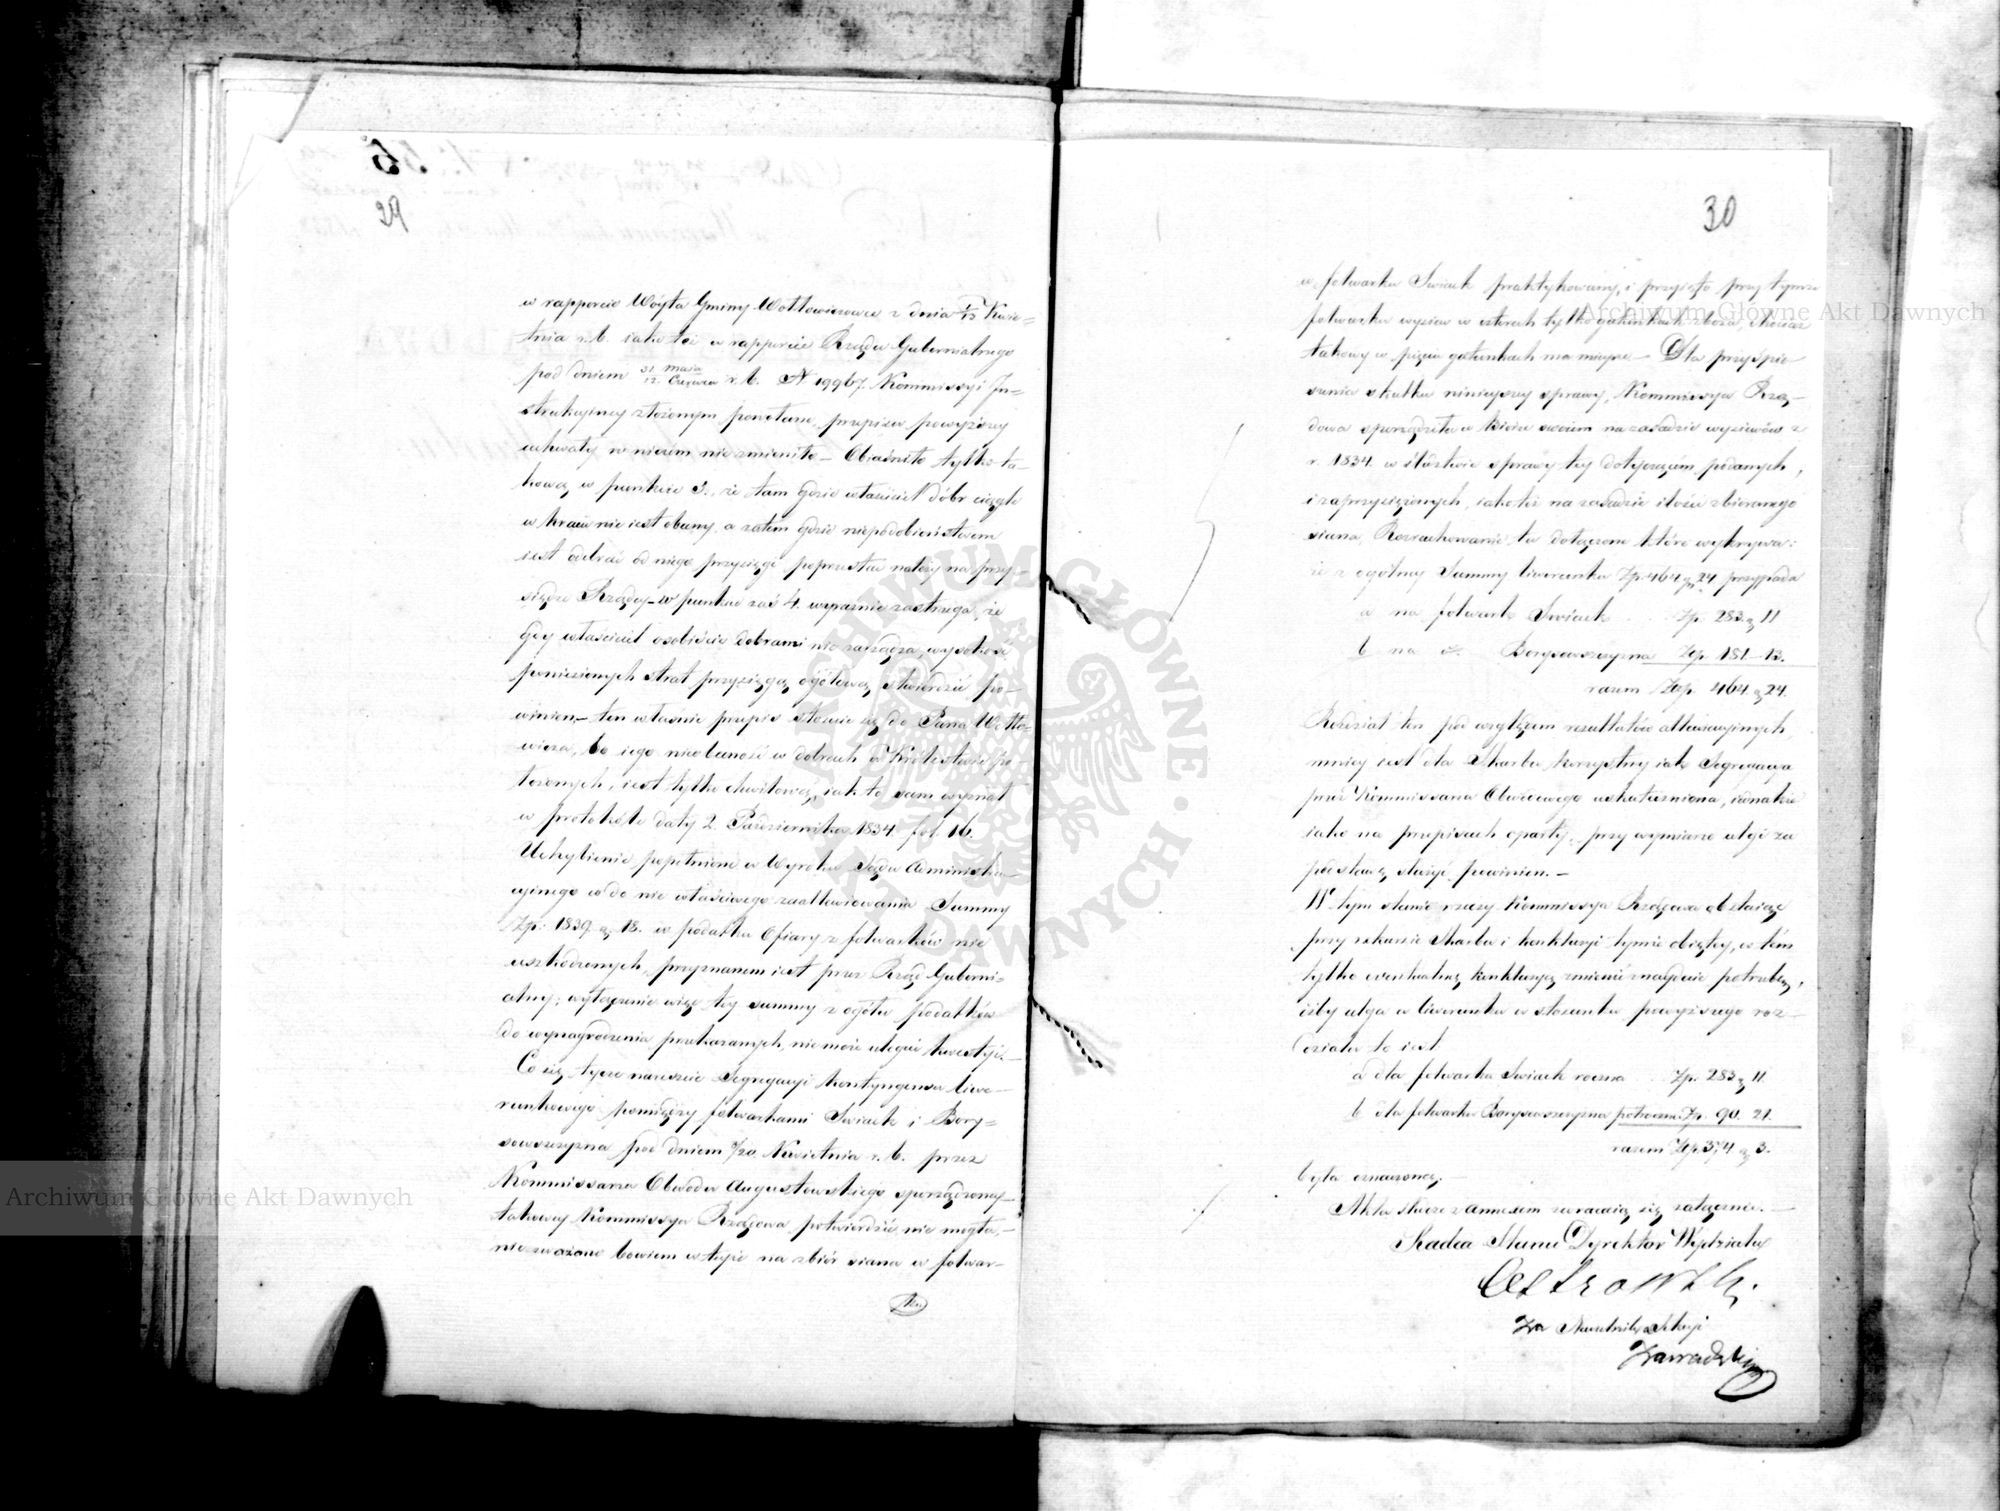 29
w rapporcie Wóyta Gminy Wołłowiczowce z dnia 1/13 Kwie=
tnia r. b. iako też w rapporcie Rządu Gubernialnego
pod dniem 31 Maja / 12 Czerwca r. b. N 19967. Kommissyi In=
strukcyiney złożonym powołane, przepisu powyższey
uchwały w niczem nie zmieniło – Obiaśniło tylko ta-
kową w punkcie 3., że tam gdzie właściciel dóbr ciągle
w kraiu nie iest obecny, a zatem gdzie niepodobieństwem
iest odebrać od niego przysięgi poprzestać należy na przy-
siędze Rządcy – w punkcie zaś 4. wyraźnie zastrzega, że
gdy właściciel osobiście dobrami nie zarządza, wysokość
poniesionych strat przysięgą ogółową stwierdzić po-
winien – ten właśnie przepis stosuie się do Pana Wołło-
wicza, bo iego nieobecność w dobrach w Królestwie po-
łożonych, iest tylko chwilową, iak to sam wyznał
w protokóle daty 2. Października 1834. fol. 16.
Uchybienie popełnione w Wyroku Sądu Administra-
cyinego co do nie właściwego zaallewiowania Summy
Złp: 1839 g 18. w podatku Ofiary z folwarków nie
uszkodzonych, przyznanem iest przez Rząd Guberni-
alny; wyłączenie więc tey summy z ogółu podatków
do wynagrodzenia przekazanych, nie może ulegać kwestyi. –
Co się tycze nareszcie Segregacyi kontyngensu liwe-
runkowego pomiędzy folwarkami Swiack i Bory=
sowszczyzna pod dniem 8/20 Kwietnia r. b. przez
Kommissarza Obwodu Augustowskiego sporządzoney
takowey Kommissya Rządowa potwierdzić nie mogła, –
nie zważano bowiem w teyże na zbiór siana w folwar-
30
w folwarku Swiack praktykowany, i przyięto przy tymże
folwarku wysiew w czterech tylko gatunkach zboża, chociaż
takowy w pięciu gatunkach ma mieysce – Dla przyśpie-
szenia skutku ninieyszey sprawy, Kommissya Rzą-
dowa sporządziła w biórze swoiem na zasadzie wysiewów z
r. 1834. w śledztwie sprawy tey dotyczącém, podanych,
i zaprzysiężonych, iako też na zasadzie ilości zbieranego
siana, Rozrachowanie tu dołączone które wykrywa:
że z ogólney Summy liwerunku Złp. 464 g 24 przypada
a na folwark Swiack . . Złp. 283 g 11
b na d°. Borysowszczyzna Złp. 181 – 13.
razem Złp. 464 g 24.
Rozdział ten pod względem rezultatów allewiacyinych,
mniey iest dla Skarbu korzystny iak Segregacya
przez Kommissarza Obwodowego uskuteczniona, iednakże
iako na przepisach oparty, przy wymiarze ulgi za
podstawę służyć powinien. –
W tym stanie rzeczy Kommissya Rządowa obstaiąc
przy rekursie Skarbu i konkluzyi tymże obiętey, w tém
tylko ewentualną konkluzyą zmienić znayduie potrzebę,
iżby ulga w liwerunku w stosunku powyższego roz-
działu to iest
a dla folwarku Swiack roczna . Złp. 283 g 11.
b dla folwarku Borysowszczyzna półroczna Złp. 90. 21.
razem Złp. 374 g 3.
była oznaczoną. –
Akta Skarbu z annexem zwracaią się załącznie. –
Radca Stanu Dyrektor Wydziału
Za Naczelnika Sekcyi
Zawadzki
Archiwum Główne Akt Dawnych
Archiwum Główne Akt Dawnych
ARCHIWUM GŁÓWNE AKT DAWNYCH